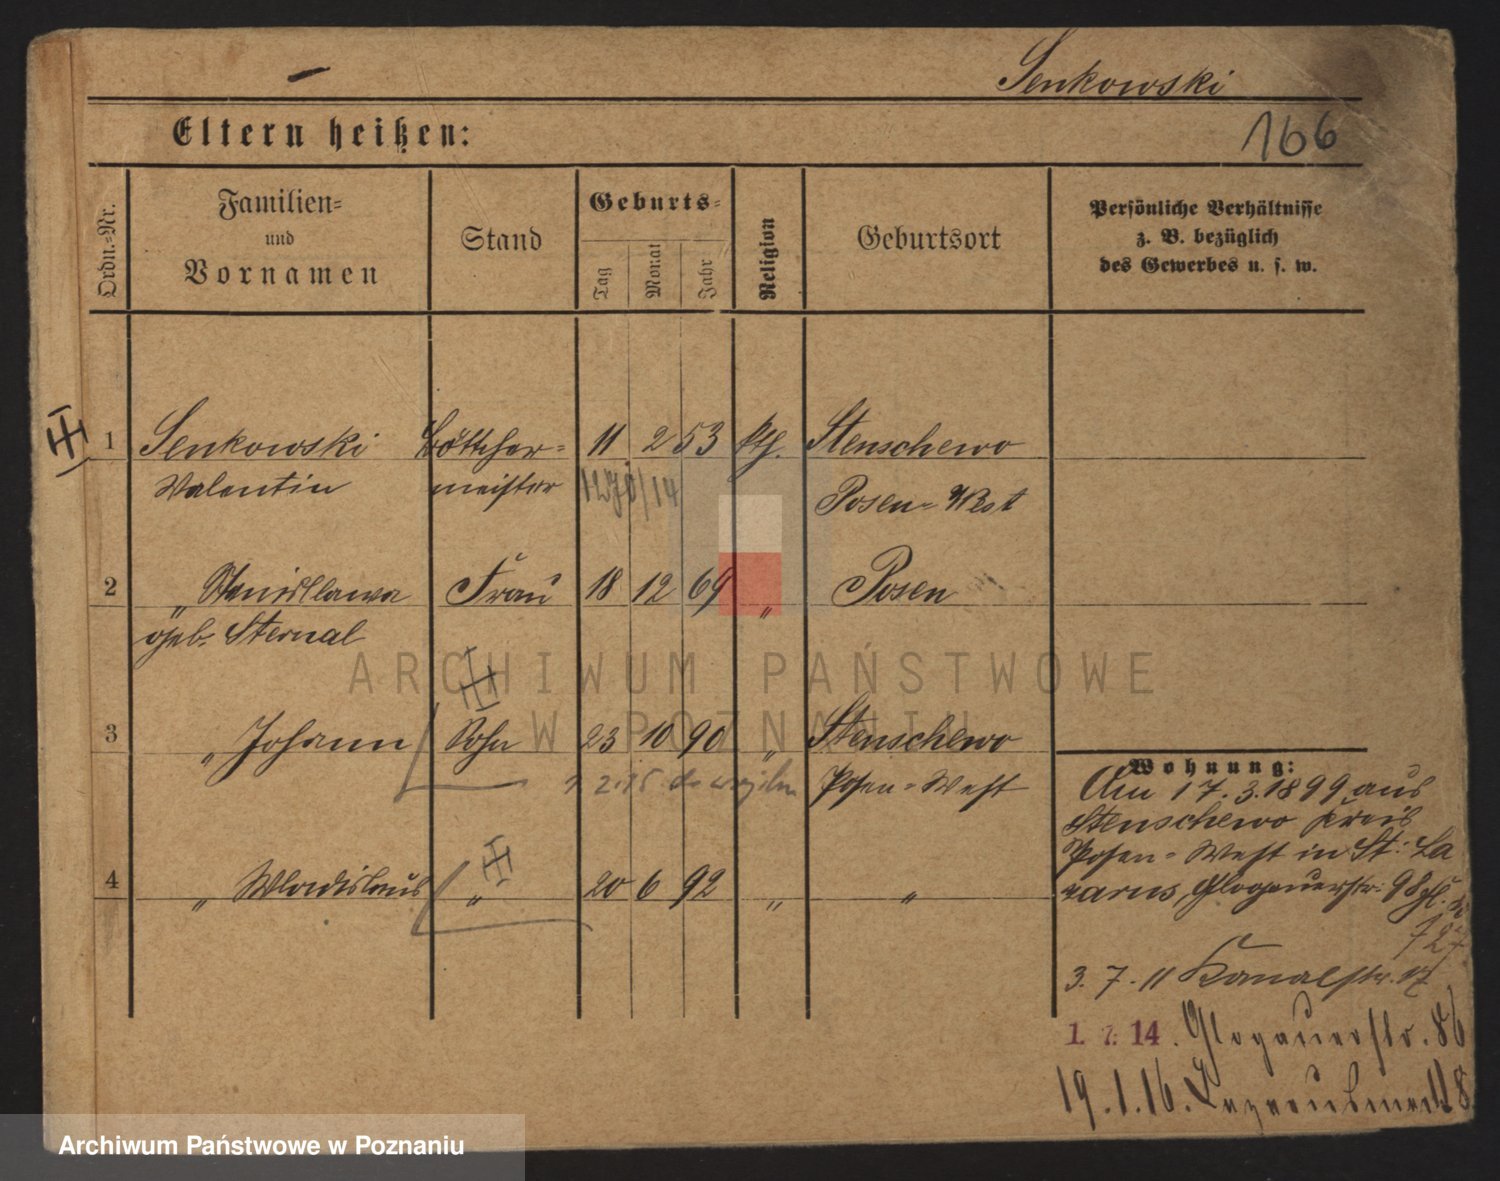 Senkowski
Eltern heißen:
166
Ordn.-Nr.
Familien-
und
Vornamen
Stand
Geburts-
Tag
Monat
Jahr
Religion
Geburtsort
Persönliche Verhältnisse
z. B. bezüglich
des Gewerbes u. s. w.
1 Senkowski Böttcher- 11 2 53 kth. Stenschewo
Valentin meister Posen-West
2 " Stanislawa Frau 18 12 69 " Posen
geb. Sternal
ARCHIWUM PAŃSTWOWE
W POZNANIU
3 " Johann Sohn 23 10 90 " Stenschewo
Posen-West
4 " Wladislaus " 20 6 92 " "
Wohnung:
Am 17.3.1899 aus
Stenschewo Kreis
Posen-West in St: La
zarus, Glogauerstr: 98
3.7.11 Kanalstr. 17
1. 7. 14. Glogauerstr. 86
19.1.16. Lazarusmarkt 8
Archiwum Państwowe w Poznaniu